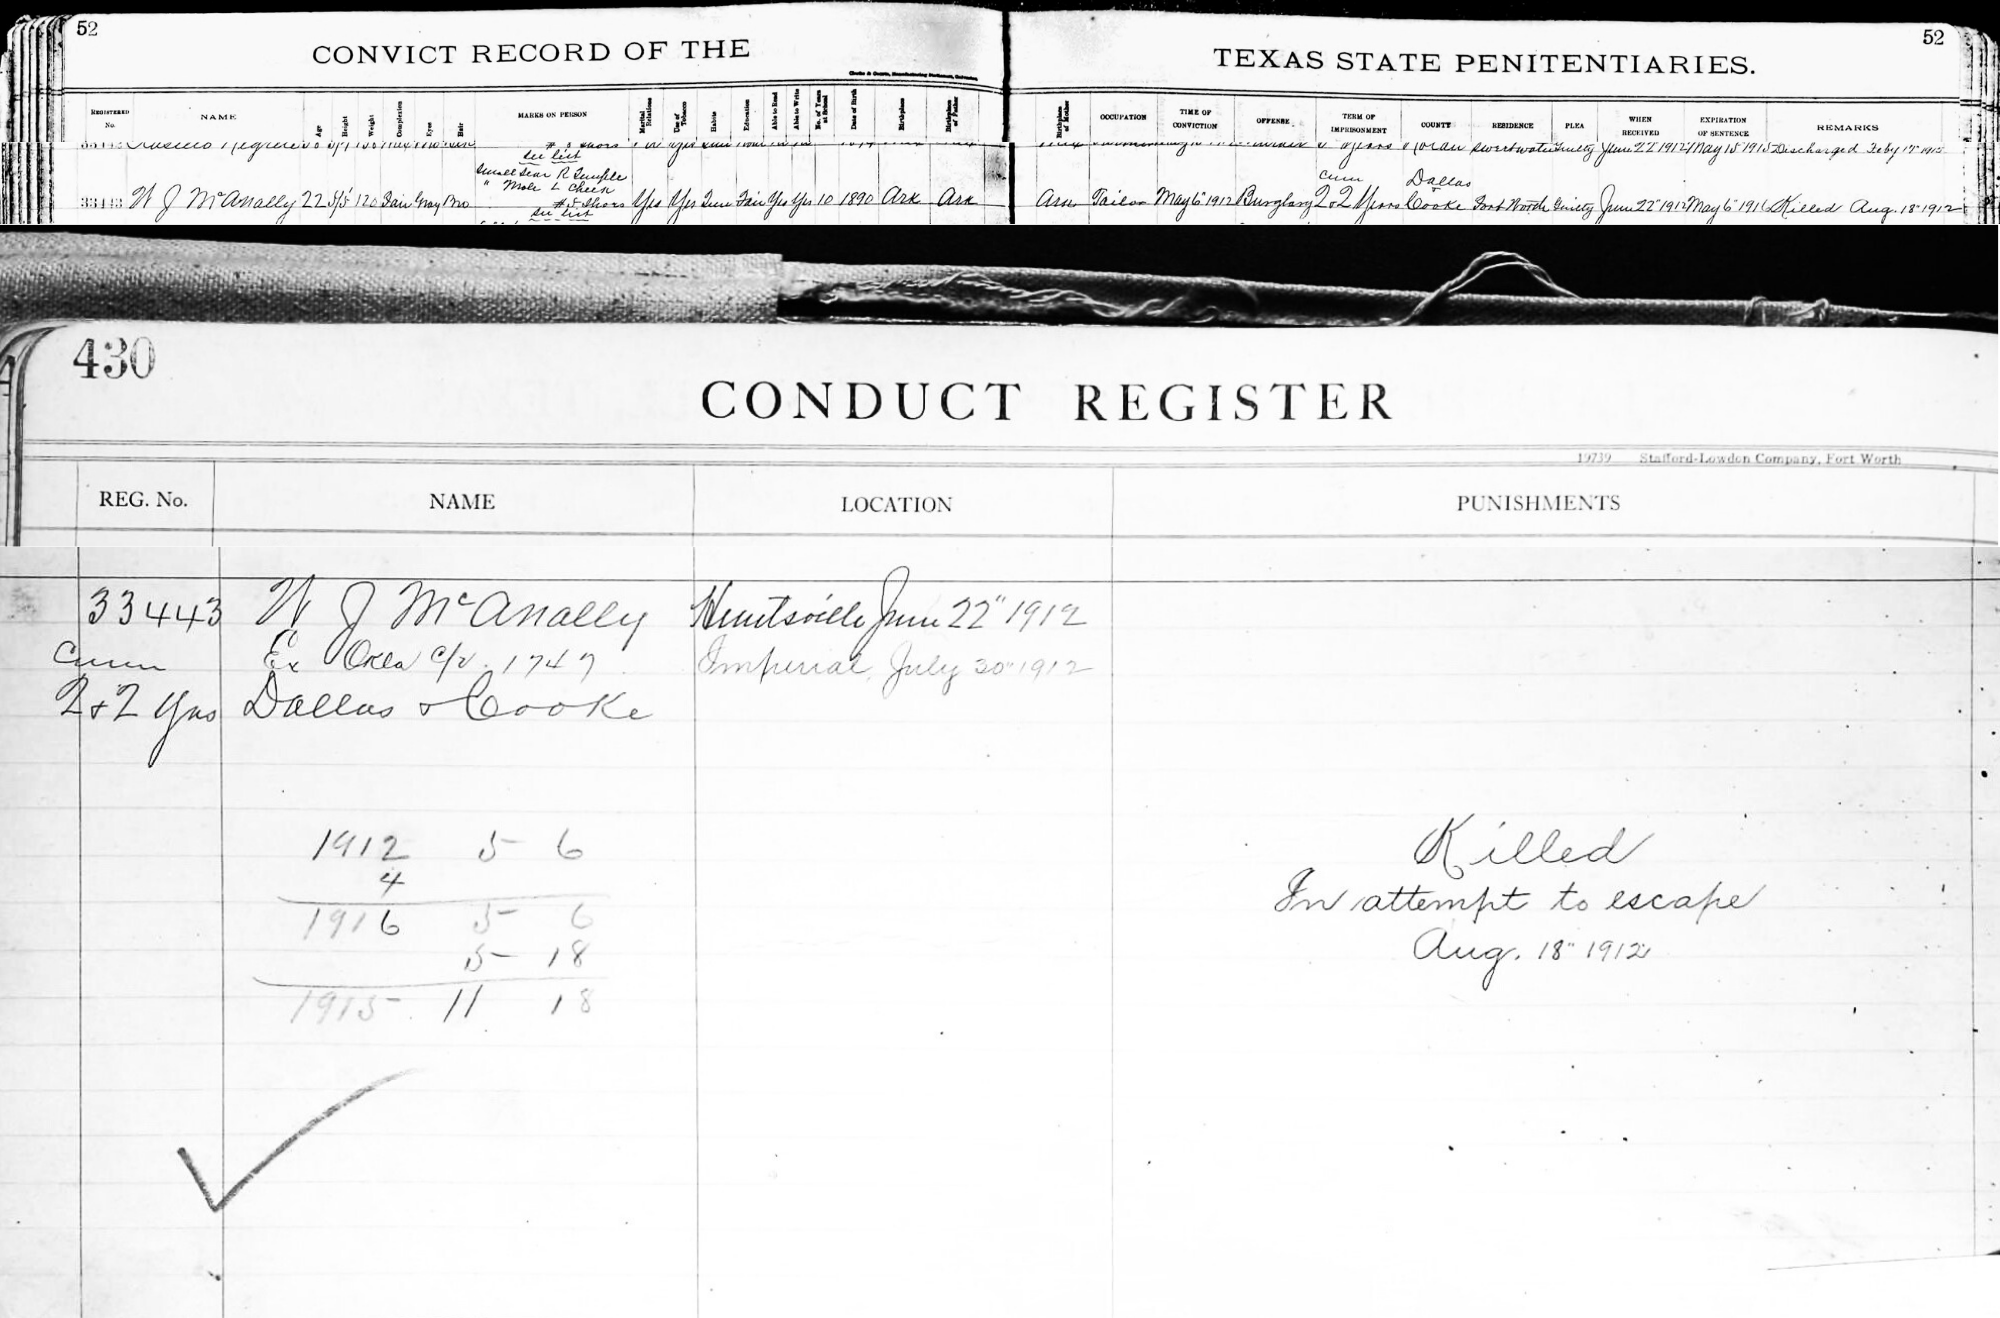 52
52
CONVICT RECORD OF THE
TEXAS STATE PENITENTIARIES.
REGISTERED No. NAME Age Height Weight Complexion Eyes Hair MARKS ON PERSON Marital Relations Use of Tobacco Habits Education Able to Read Able to Write No. of Years at School Date of Birth Birthplace Birthplace of Father Birthplace of Mother OCCUPATION TIME OF CONVICTION OFFENSE TERM OF IMPRISONMENT COUNTY RESIDENCE PLEA WHEN RECEIVED EXPIRATION OF SENTENCE REMARKS
years Sweetwater Guilty June 22" 1912 May 15" 1915 Discharged Feby 17" 1915
See list
Small Scar R Temple
" Mole L Cheek Cum Dallas
33443 W J McAnally 22 5/5 120 Fair Gray Bro #5 Shoes Yes Yes Tem Fair Yes Yes 10 1890 Ark Ark Ark Tailor May 6" 1912 Burglary 2+2 Years Cooke Fort Worth Guilty June 22" 1912 May 6" 1916 Killed Aug. 18" 1912
See list
430
CONDUCT REGISTER
19739 Stafford-Lowdon Company, Fort Worth
REG. No. NAME LOCATION PUNISHMENTS
33443 W J McAnally Huntsville June 22" 1912
Cum Ex Okla C/v. 1747 Imperial, July 30" 1912
2+2 Yrs Dallas & Cooke
1912 5 6
4
1916 5 6
5 18
1915 11 18
Killed
In attempt to escape
Aug. 18" 1912